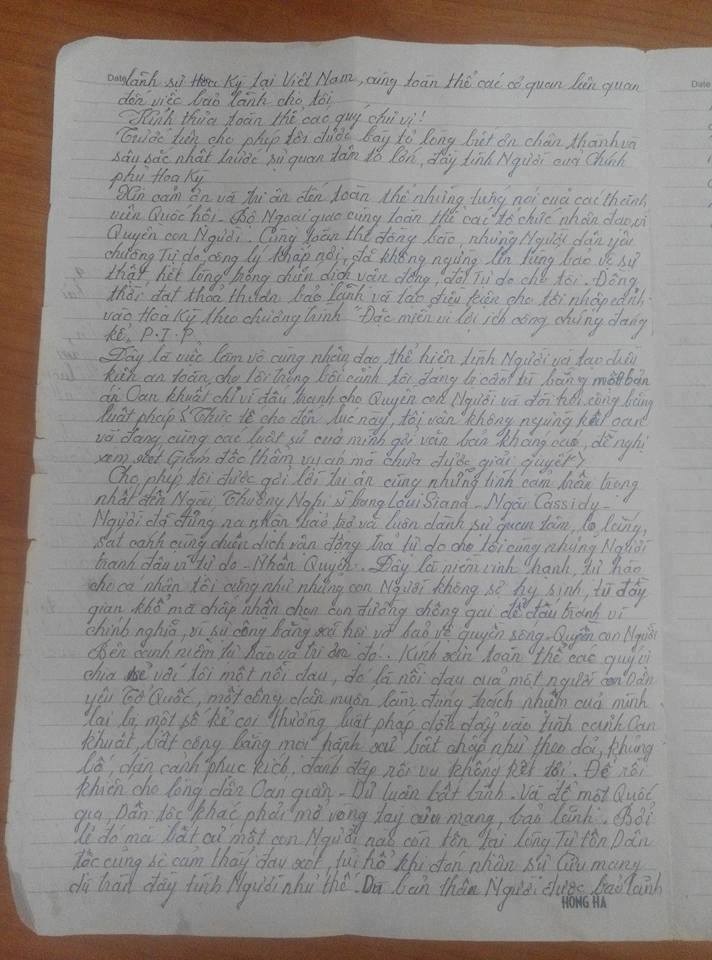 Date
lãnh sự Hoa Kỳ tại Việt Nam, cùng toàn thể các cơ quan liên quan
đến việc bảo lãnh cho tôi
Kính thưa toàn thể các quý chư vị!
Trước tiên cho phép tôi được bày tỏ lòng biết ơn chân thành và
sâu sắc nhất trước sự quan tâm to lớn, đầy tính Người của Chính
phủ Hoa Kỳ
Xin cảm ơn và tri ân đến toàn thể những tiếng nói của các thành
viên Quốc hội - Bộ Ngoại giao cùng toàn thể các tổ chức nhân đạo, vì
Quyền con Người. Cùng toàn thể đồng bào, những Người dân yêu
chuộng Tự do, công lý khắp nơi, đã không ngừng lên tiếng bảo vệ sự
thật hết lòng trong chiến dịch vận động, đòi Tự do cho tôi. Đồng
thời đạt thoả thuận bảo lãnh và tạo điều kiện cho tôi nhập cảnh
vào Hoa Kỳ theo chương trình "Đặc miễn vì lợi ích công chúng đáng
kể, P.I.P.
Đây là việc làm vô cùng nhân đạo thể hiện tính Người và tạo điều
kiện an toàn cho tôi trong bối cảnh tôi đang bị cầm tù bằng một bản
án Oan khuất chỉ vì đấu tranh cho Quyền con Người và đòi hỏi công bằng
luật pháp (Thực tế cho đến lúc này, tôi vẫn không ngừng kêu oan
và đang cùng các luật sư của mình gửi văn bản kháng cáo, đề nghị
xem xét Giám đốc thẩm vụ án mà chưa được giải quyết)
Cho phép tôi được gửi lời tri ân cùng những tình cảm trân trọng
nhất đến Ngài Thượng Nghị sĩ bang LouiSiana - Ngài Cassidy -
Người đã đứng ra nhận bảo trợ và luôn dành sự quan tâm, lo lắng,
sát cánh cùng chiến dịch vận động trả tự do cho tôi cùng những Người
tranh đấu vì tự do - Nhân Quyền.. Đây là niềm vinh hạnh, tự hào
cho cá nhân tôi cũng như những con Người không sợ hy sinh, tù đầy
gian khổ mà chấp nhận chọn con đường chông gai để đấu tranh vì
chính nghĩa, vì sự công bằng xã hội và bảo vệ quyền sống - Quyền con Người
Bên cạnh niềm tự hào và tri ân đó.. Kính xin toàn thể các quý vị
chia sẻ với tôi một nỗi đau, đó là nỗi đau của một người con Dân
yêu Tổ Quốc, một công dân muốn làm đúng trách nhiệm của mình
lại bị một số kẻ coi thường luật pháp dồn đẩy vào tình cảnh Oan
khuất, bất công bằng mọi hành xử bất chấp như theo dõi, khủng
bố, dàn cảnh phục kích, đánh đập rồi vu khống kết tội. Để rồi
khiến cho lòng dân Oan giận - Dư luận bất bình. Và để một Quốc
gia, Dân tộc khác phải mở vòng tay cưu mang, bảo lãnh. Bởi
lẽ đó mà bất cứ một con Người nào còn tồn tại lòng Tự tôn Dân
tộc cũng sẽ cảm thấy đau xót, tủi hổ khi đón nhận sự Cưu mang
dù tràn đầy tính Người như thế. Dù bản thân Người được bảo lãnh
HONG HA
Date